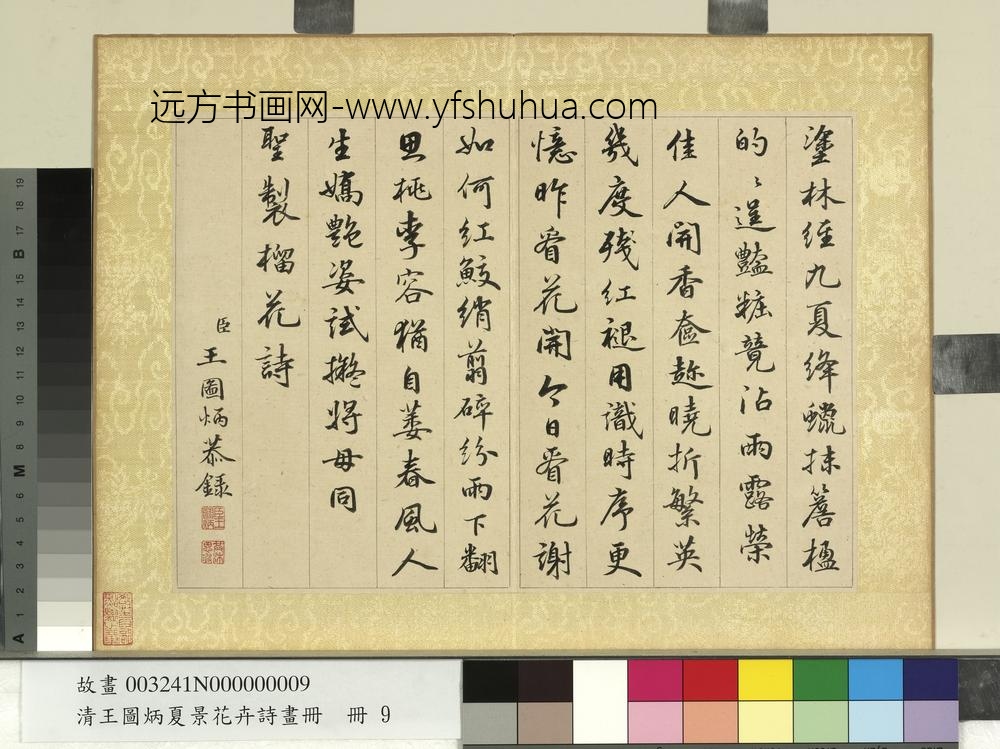 远方书画网-www.yfshuhua.com
塗林經九夏絳蠟抹簷楹
的〻逞豔粧競沾雨露榮
佳人開香奩趂曉折繁英
幾度殘紅褪用識時序更
憶昨看花開今日看花謝
如何紅鮫綃翦碎紛雨下翻
思桃李容猶自萎春風人
生嬌艷姿試擬將毋同
聖製榴花詩
臣王圖炳恭錄
故畫 003241N000000009
清王圖炳夏景花卉詩畫冊 冊 9
19
18
17
B
15
14
13
12
11
10
9
8
M
6
5
4
3
2
1
A